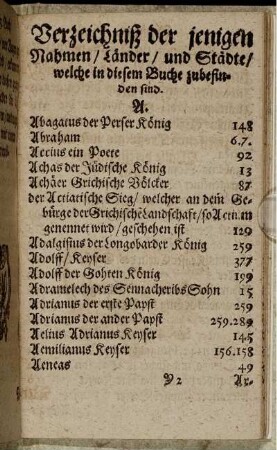 Verzeichniß der jenigen
Nahmen / Länder / und Städte /
welche in diesem Buche zubefin-
den sind.
A.
Abagatus der Perser König 148
Abraham 6.7.
Accius ein Poete 92
Achas der Jüdische König 13
Achäer Grichische Völcker 87
der Actiatische Sieg / welcher an dem Ge-
bürge der Grichischē Landschafft / so Actium
genennet wird / geschehen ist 129
Adalgisus der Longobarder König 259
Adolff / Keyser 377
Adolff der Gohten König 199
Adramelech des Sennacheribs Sohn 15
Adrianus der erste Papst 259
Adrianus der ander Papst 259.289
Aelius Adrianus Keyser 145
Aemilianus Keyser 156.158
Aeneas 49
Y 2 Ar-